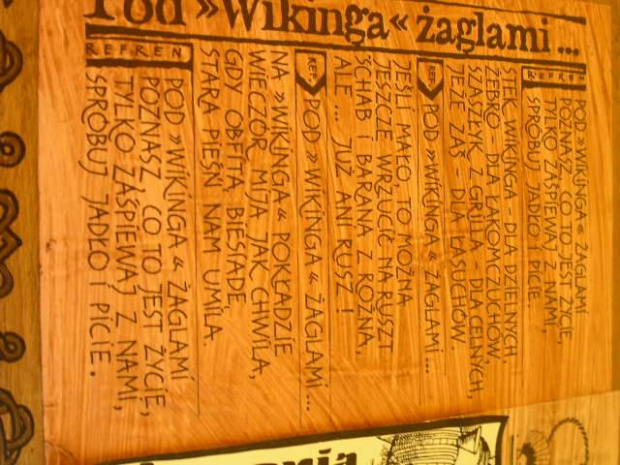 Pod »Wikinga« żaglami ...
REFREN
POD »WIKINGA« ŻAGLAMI
POZNASZ, CO TO JEST ŻYCIE,
TYLKO ZAŚPIEWAJ Z NAMI,
SPRÓBUJ JADŁO I PICIE.
STEK WIKINGA - DLA DZIELNYCH
ŻEBRO - DLA ŁAKOMCZUCHÓW,
SZASZŁYK Z GRILLA - DLA CELNYCH,
JEŻE ZAŚ - DLA ŁASUCHÓW.
REF. POD »WIKINGA« ŻAGLAMI ...
JEŚLI MAŁO, TO MOŻNA
JESZCZE WRZUCIĆ NA RUSZT
SCHAB I BARANA Z ROŻNA,
ALE ... JUŻ ANI RUSZ !
REF. POD »WIKINGA« ŻAGLAMI ...
NA »WIKINGA« POKŁADZIE
WIECZÓR MIJA JAK CHWILA,
GDY OBFITĄ BIESIADĘ,
STARA PIEŚŃ NAM UMILA.
REFREN
POD »WIKINGA« ŻAGLAMI
POZNASZ, CO TO JEST ŻYCIE,
TYLKO ZAŚPIEWAJ Z NAMI,
SPRÓBUJ JADŁO I PICIE.